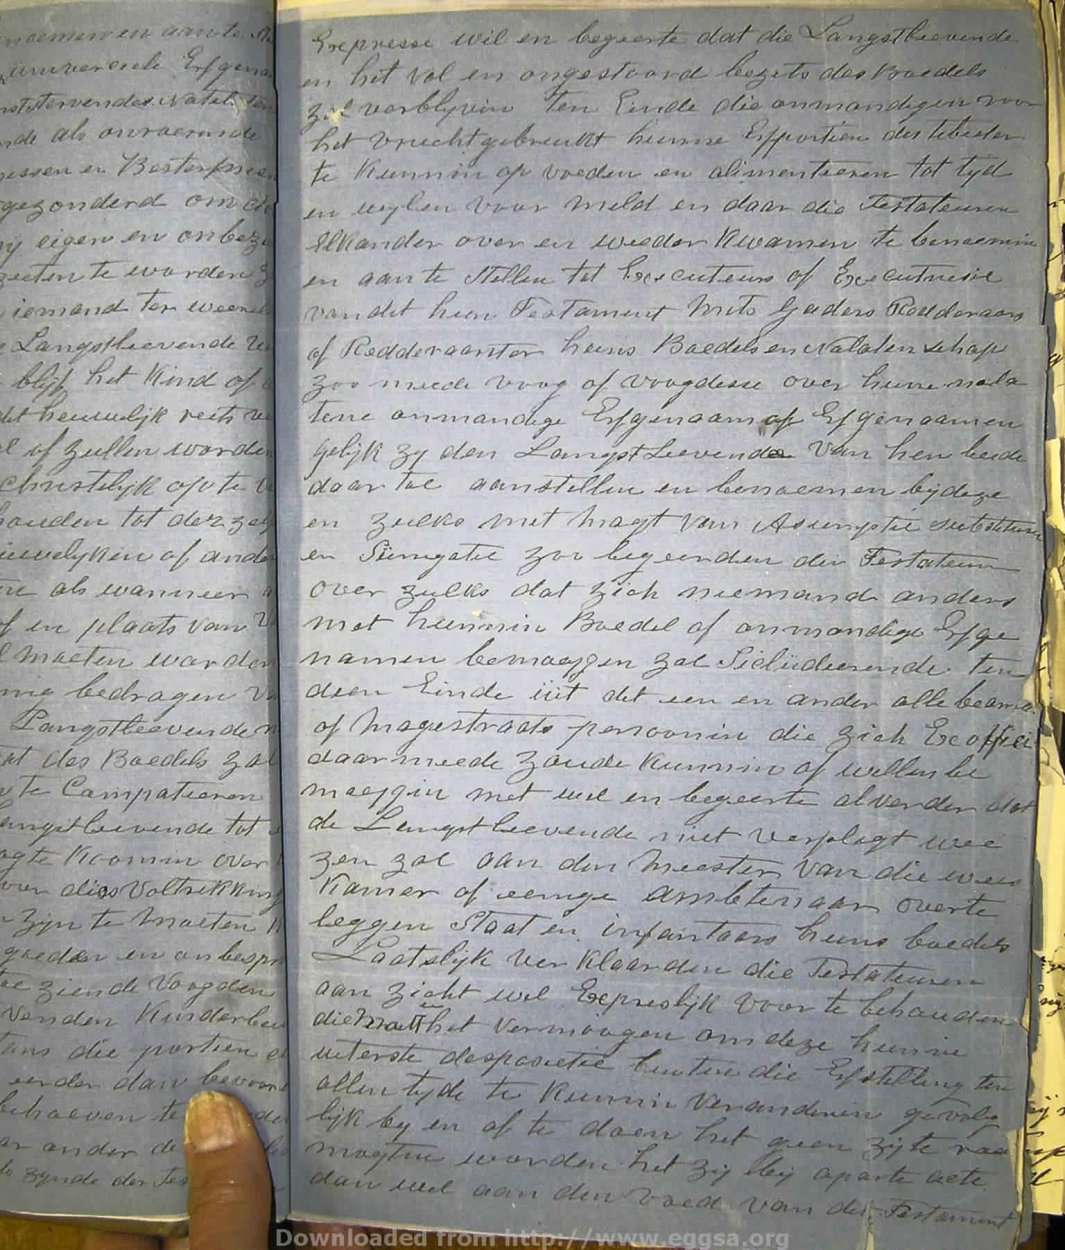 noemen en aan te
universeele Erfgena
nde als onvoernde
essen en Besterfnisse
gezonderd om
eigen en onbez
zeeten te worden
iemand ter weerel
Langstleevende
blijf het Kind of
het heuwelijk reets
el of zullen worden
christelijk op te
houden tot derzelf
of ande
als wanneer
in plaats van
moeten worden
bedragen
Langstleevende
des Boedels zal
te Compateeren
langstleevende tot
agte Koomen over
over dies voltrekking
zijn te moeten
goeder en onbesp
toe ziende Voogden
venden Kinder
die portien
eerder dan bevoor
behoeven te
onder de
zynde den Tes
Expresse wil en begeerte dat die Langstleevende
en het vol en ongestoord bezets des Boedels
zal verblyven Ten Einde die onmondigen voor
het vruchtgebruikt hunne Erfportien des tebeeter
te Kunnen op voeden en alimenteeren tot tyd
en wylen voor meld en daar die Testateuren
Elkander over en weeder Kwamen te benoemen
en aan te Stellen tot Executeurs of Executriese
van dit hun Testament Mits gaders Redderaars
of Redderaarster huns Boedels en Nalatenschap
zoo meede voog of voogdesse over hunne nala
tene onmondige Erfgenaam of Erfgenaamen
gelijk zy den Langst Leevende van hen beide
daar toe aanstellen en benoemen bij deze
en zulks met magt van Asumptie substitutie
en Surrogatie zoo begeerden die Testateuren
over zulks dat zich niemand anders
met hunnen Boedel of onmondige Erfge
namen bemoeijen zal Secludeerende ten
dien Einde uit dit een en ander alle beamte
of Magestraats persoonen die zich Ex officie
daarmeede zoude Kunnen of willen be
moeijen met wil en begeerte al verder dat
de Langst leevende niet verplegt wee
zen zal aan den Meester van die wees
Kamer of eenige ambtenaar overte
leggen Staat en infantaars huns boedels
Laatslijk verklaarden die Testateuren
aan zicht wel Expreslijk voor te behouden
die Mait het vermoogen om deze hunne
uiterste desposietie buiten die Erfstelling ten
allen tyde te Kunnen veranderen gevolg
lijk by en af te doen het geen zij te raa
mogten worden het zij bij aparte acte
dan wel aan den voed van den Testament
Downloaded from http://www.eggsa.org